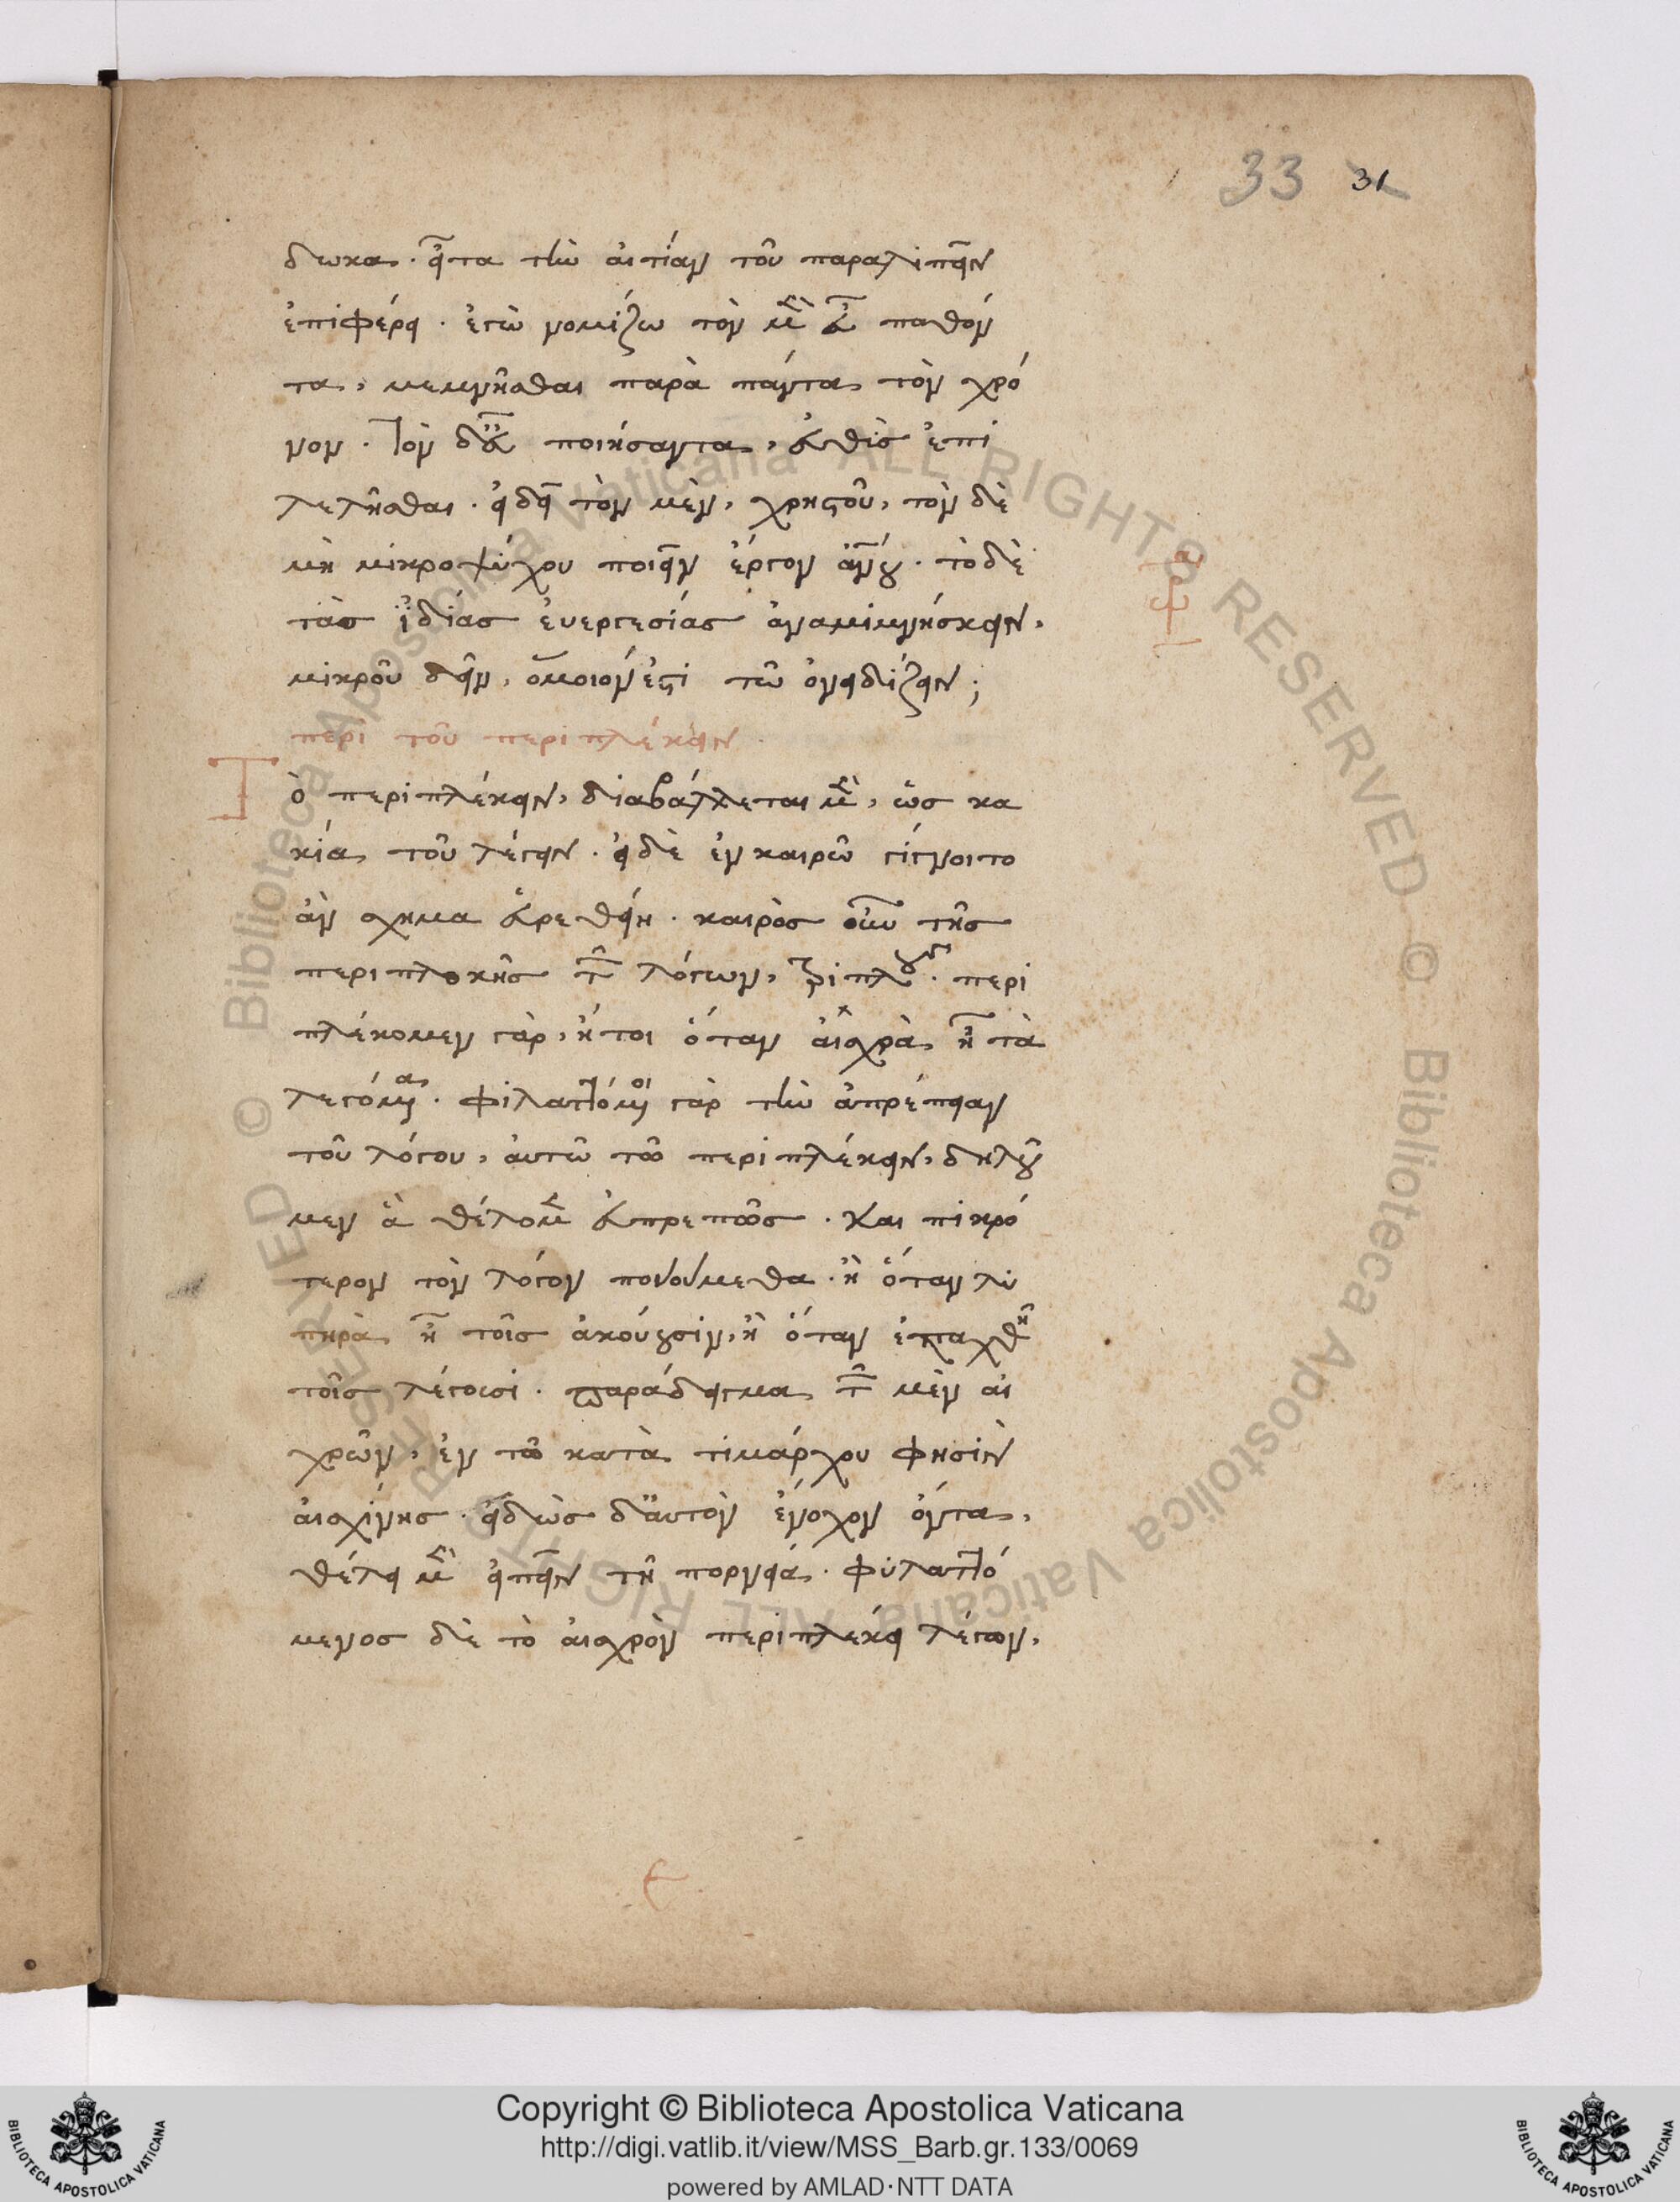 33 31
δωκα. εἶτα τὴν αἰτίαν τοῦ παραλιπεῖν
ἐπιφέρει. ἐγὼ νομίζω τὸν μὲν εὖ παθόν
τα, μεμνῆσθαι παρὰ πάντα τὸν χρό
νον. Τὸν δ' εὖ ποιήσαντα, εὐθὺς ἐπι
λελῆσθαι. εἰ δεῖ τὸν μὲν, χρηστοῦ, τὸν δὲ
μὴ μικροψύχου ποιεῖν ἔργον ἀνου. τὸ δὲ
τὰς ἰδίας ἐυεργεσίας ἀναμιμνήσκειν,
μικροῦ δεῖν, ὅμοιόν ἐστι τῶ ὀνειδίζειν;
περι τοῦ περιπλέκειν
Τὸ περιπλέκειν, διαβάλλεται μὲν, ὡς κα
κία τοῦ λέγειν. εἰ δὲ ἐν καιρῶ γίγνοιτο
ἂν σχημα εὑρεθείη. καιρὸς οὖν τῆς
περιπλοκῆς τῶν λόγων, τριπλοῦς. περι
πλέκομεν γὰρ, ἤτοι ὅταν αἰσχρὰ ἦ τὰ
λεγόμενα. φυλαττόμενοι γὰρ τὴν ἀπρέπειαν
τοῦ λόγου, ἀυτῶ τῶ περιπλέκειν, δηλοῦ
μεν ἃ θέλομεν εὐπρεπῶς. Και πικρό
τερον τὸν λόγον ποιούμεθα. ἢ ὅταν λυ
πηρὰ ἦ τοῖς ἀκούουσιν, ἢ ὅταν ἐπαχθῆ
τοῖς λέγουσι. παράδειγμα τῶν μὲν αἰ
χρῶν, ἐν τῶ κατὰ τιμάρχου φησὶν
ἀισχίνης. εἰδὼς δ' ἀυτὸν ἔνοχον ὄντα,
θέλει μὲν εἰπεῖν τῆ πορνεία. φυλαττό
μενος δὲ τὸ ἀισχρὸν περιπλέκει λέγων,
Copyright © Biblioteca Apostolica Vaticana
http://digi.vatlib.it/view/MSS_Barb.gr.133/0069
powered by AMLAD·NTT DATA